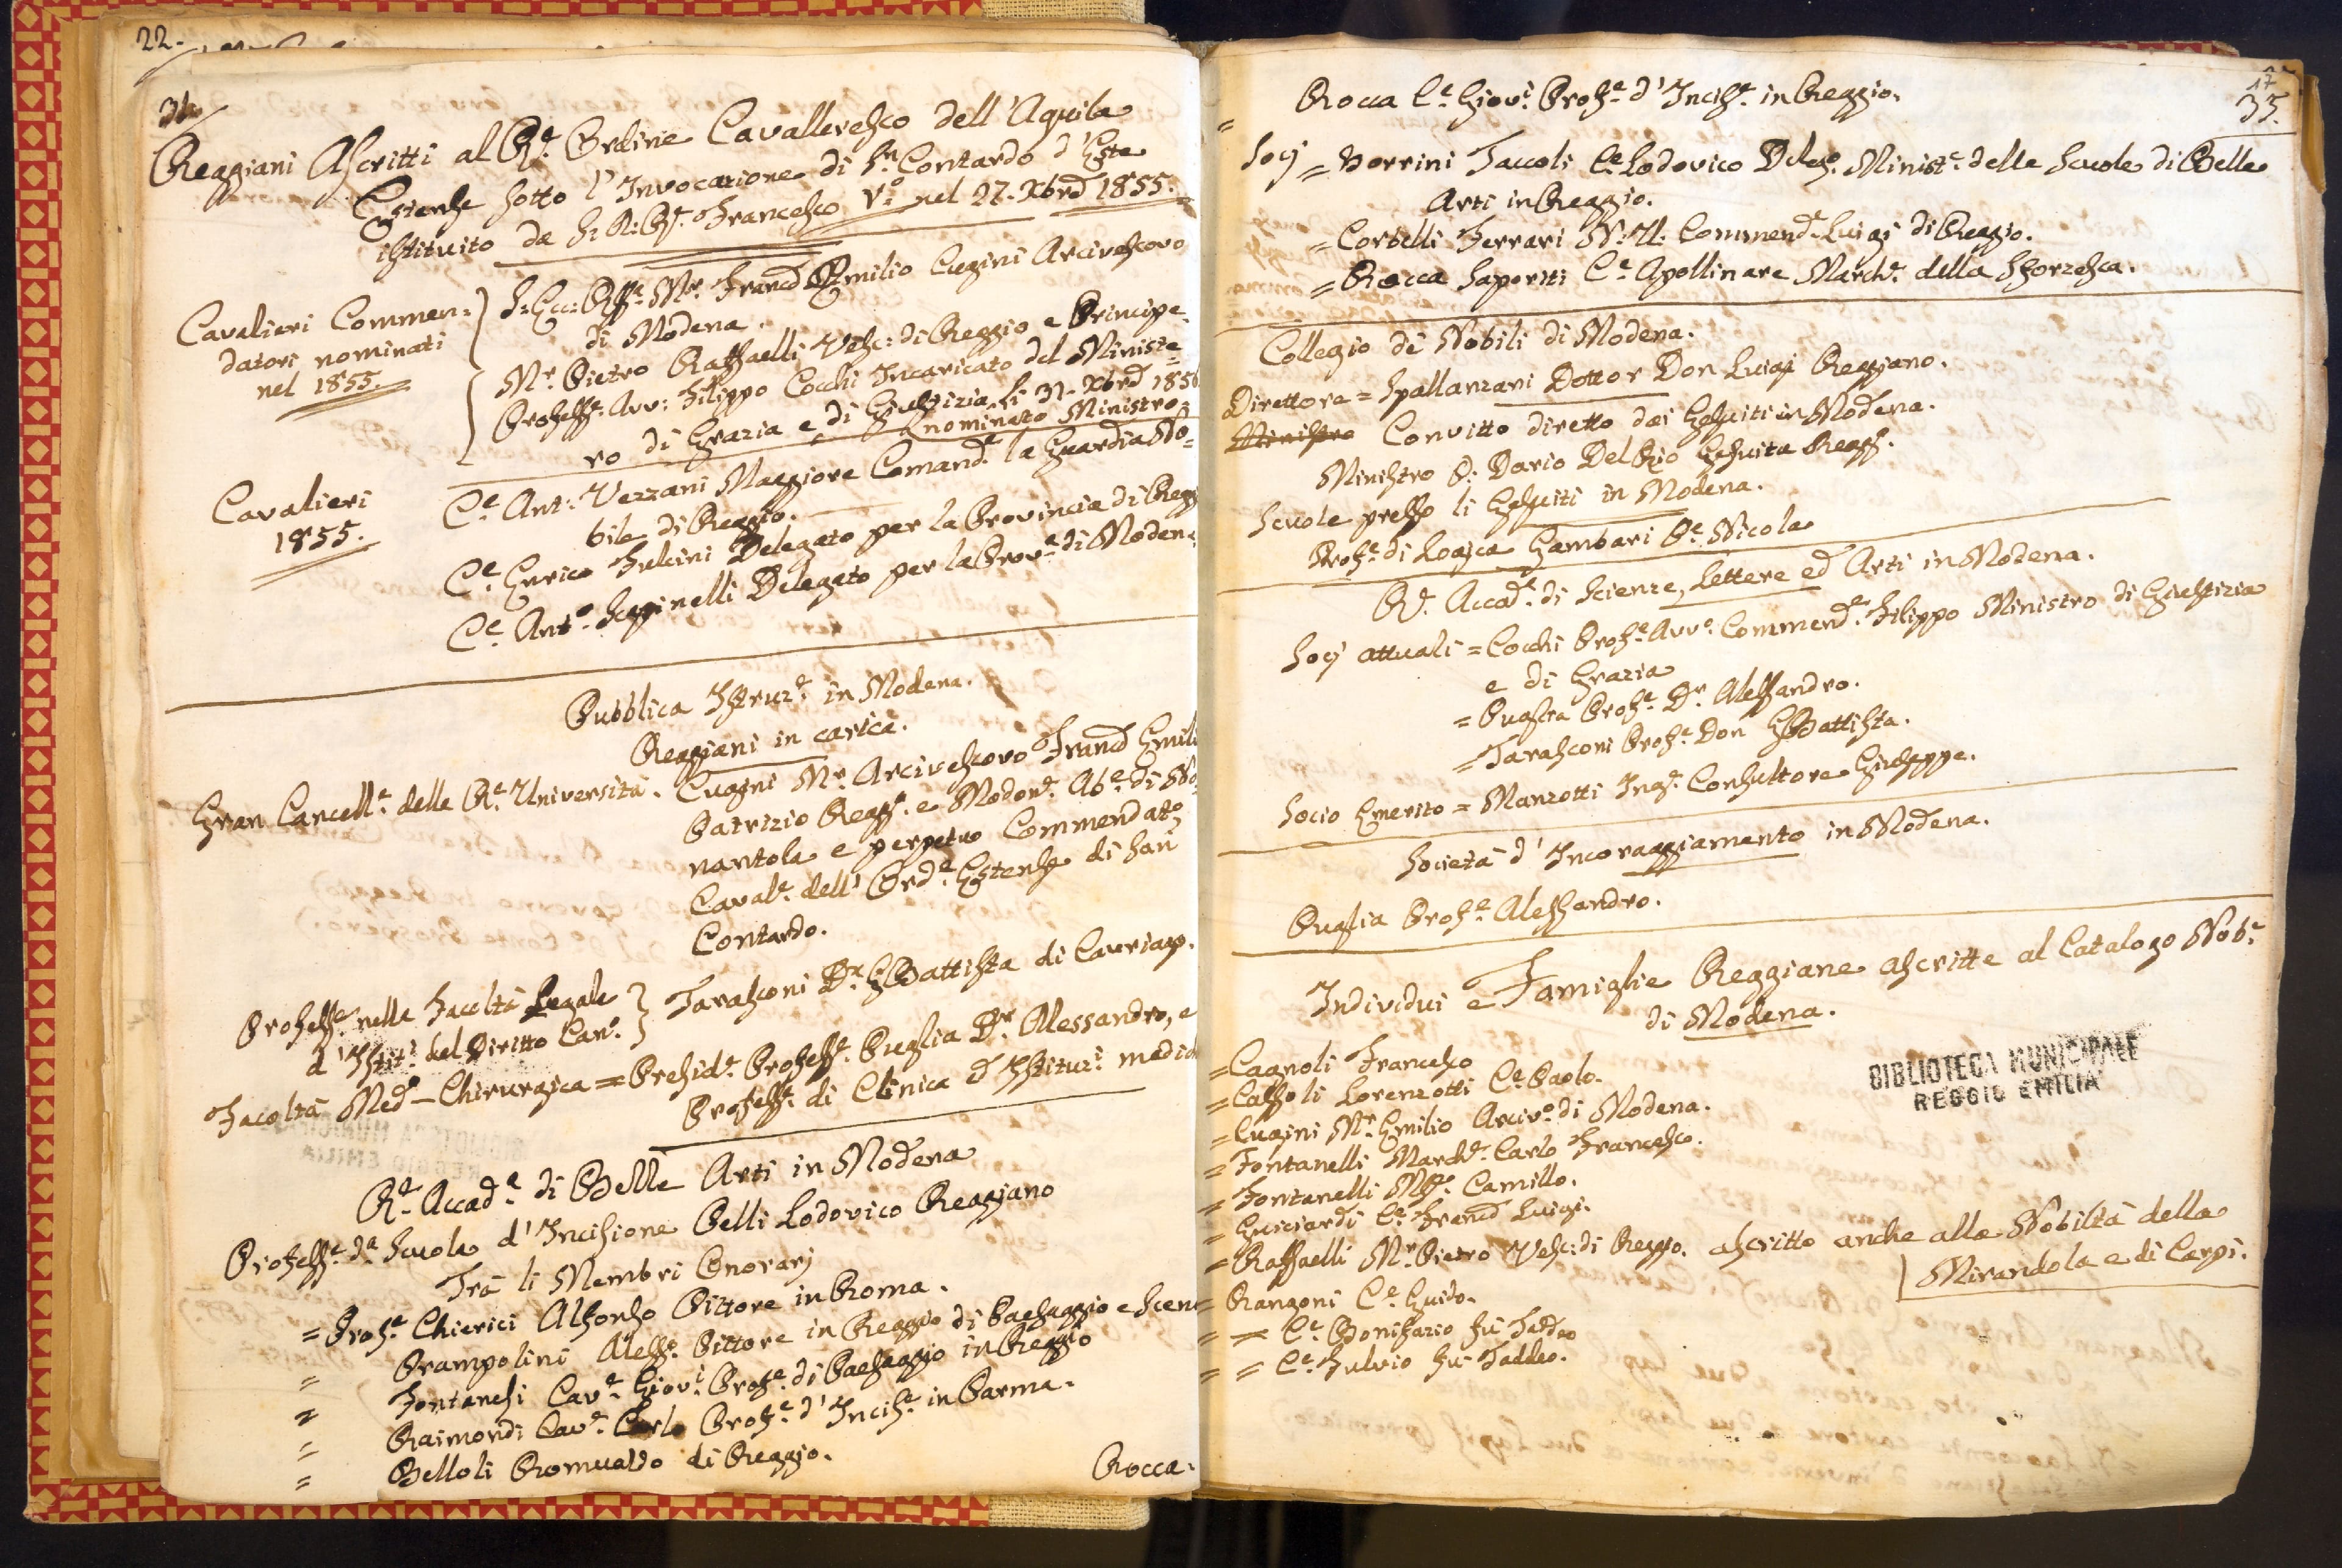 22.
34.
Reggiani Ascritti al R.e Ordine Cavalleresco dell'Aquila
Estense sotto l'Invocazione di S.n Contardo d'Este
istituito da S: A: R.e Francesco V.o nel 27. Xbre 1855.
Cavalieri Commen:
datori nominati
nel 1855.
S: Ecc: R.ssa M.r Franc.o Emilio Cugini Arcivescovo
di Modena.
M.r Pietro Raffaelli Vesc: di Reggio e Principe.
Profess.e Avv: Filippo Cocchi Incaricato del Ministe=
ro di Grazia e di Giustizia, li 31. Xbre 1856
nominato Ministro.
Cavalieri
1855.
C.e Ant: Vezzani Maggiore Comand.e la Guardia No=
bile di Reggio.
C.e Enrico Fulcini Delegato per la Provincia di Regg
C.e Ant.o Scapinelli Delegato per la Prov.a di Moden
Pubblica Istruz.e in Modena.
Reggiani in carica.
Gran Cancell.e della R.e Università. Cugini M.r Arcivescovo Franc.o Emili
Patrizio Regg.o e Moden.e Ab.e di No=
nantola e perpetuo Commendat.o
Caval.e dell' Ord.e Estense di San
Contardo.
Profess.e nella Facoltà Legale
d'Istit.i del Diritto Can.o } Tarasconi D.r GBattista di Cavriago.
Facoltà Med.o-Chirurgica = Presid.e Profess.e Puglia D.r Alessandro, e
Profess.e di Clinica ed Istituz.i medic
R.e Accad.a di Belle Arti in Modena
Profess.e d.a Scuola d'Incisione Belli Lodovico Reggiano
Trà li Membri Onorarj
= Prof.e Chierici Alfonso Pittore in Roma.
= Prampolini Aless.o Pittore in Reggio di Paesaggio e Scen
= Fontanesi Cav.e Giov.i Prof.e di Paesaggio in Reggio
= Raimondi Cav.e Carlo Prof.e d'Incis.e in Parma.
= Belloli Romualdo di Reggio.
Rocca.
17
35.
= Rocca C.e Giov.i Prof.e d'Incis.e in Reggio.
Socj = Borrini Taccoli C.e Lodovico Deleg.o Minist.e delle Scuole di Belle
Arti in Reggio.
= Corbelli Ferrari N: U: Commend.e Luigi di Reggio.
= Rocca Saporiti C.e Apollinare March.e della Sforzesca.
Collegio de Nobili di Modena.
Direttore = Spallanzani Dottor Don Luigi Reggiano.
Ministro Convitto diretto dai Gesuiti in Modena.
Ministro P: Dario Del Rio Gesuita Regg.o
Scuole presso li Gesuiti in Modena.
Prof.e di Logica Gambari P.e Nicola
R.e Accad.a di Scienze, Lettere ed Arti in Modena.
Socj attuali = Cocchi Prof.e Avv.o Commend.e Filippo Ministro di Giustizia
e di Grazia
= Puglia Prof.e D.r Alessandro.
= Tarasconi Prof.e Don GBattista.
Socio Emerito = Manzotti Ing.e Consultore Giuseppe.
Società d'Incoraggiamento in Modena.
Puglia Prof.e Alessandro.
Individui e Famiglie Reggiane ascritte al Catalogo Nob.e
di Modena.
= Cagnoli Francesco
= Cassoli Lorenzotti C.e Paolo.
= Cugini M.r Emilio Arciv.o di Modena.
= Fontanelli March.e Carlo Francesco.
= Fontanelli M.se Camillo.
= Guicciardi C.e Franc.o Luigi.
= Raffaelli M.r Pietro Vesc: di Reggio. ascritto anche alla Nobiltà della
Mirandola e di Carpi.
= Rangoni C.e Guido.
= = C.e Bonifazio fù Taddeo
= = C.e Fulvio fù Taddeo.
BIBLIOTECA MUNICIPALE
REGGIO EMILIA